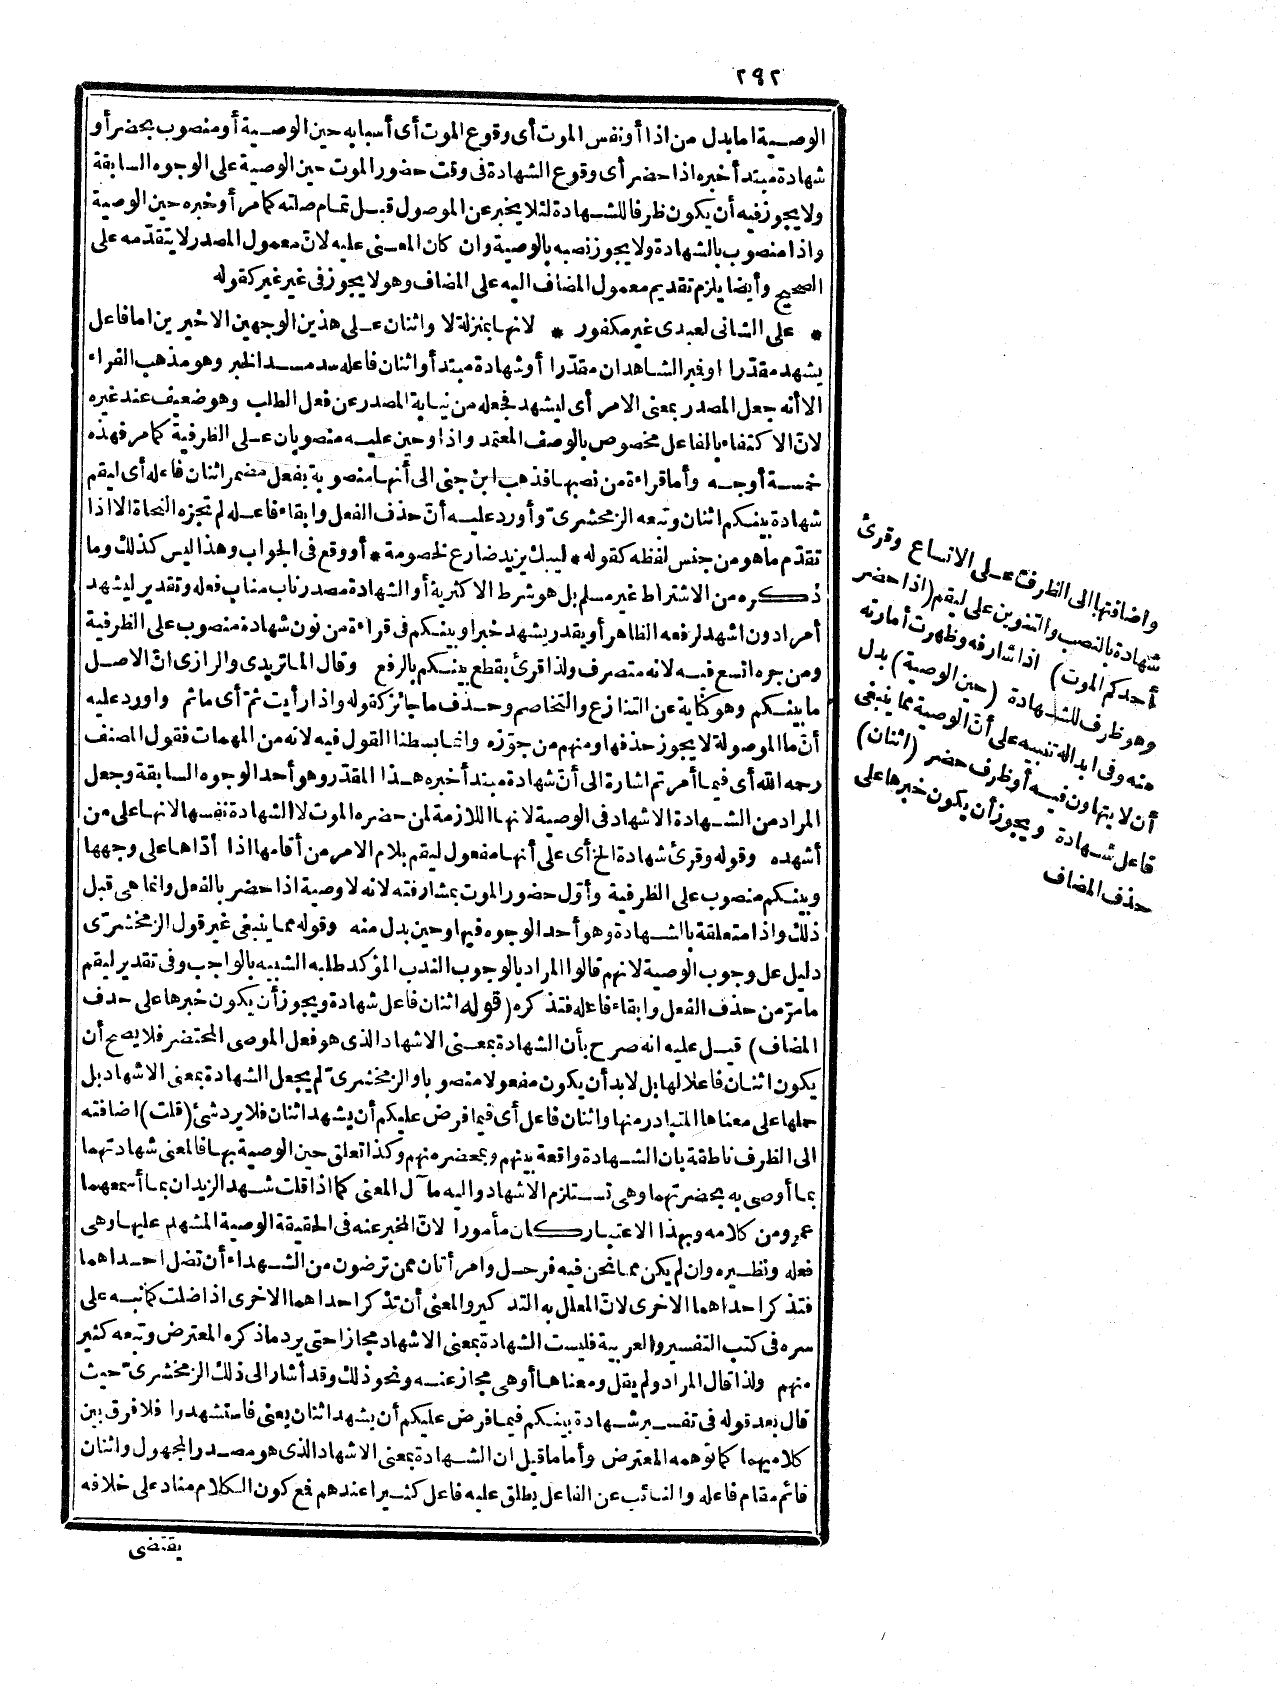 ٢٩٢
الوصية اما بدل من اذا أو نفس الموت أى وقوع الموت أى أسبابه حين الوصية أو منصوب بحضر أو
شهادة مبتدأ خبره اذا حضر أى وقوع الشهادة فى وقت حضور الموت حين الوصية على الوجوه السابقة
ولا يجوز فيه أن يكون ظرفا للشهادة لئلا يخبر عن الموصول قبل تمام صلته كما مر أو خبره حين الوصية
واذا منصوب بالشهادة ولا يجوز نصبه بالوصية وان كان المعنى عليه لانّ معمول المصدر لا يتقدّمه على
الصحيح وأيضا يلزم تقديم معمول المضاف اليه على المضاف وهو لا يجوز فى غير غير كقوله
* على الشانى لعبدى غير مكفور * لانها بمنزلة لا واثنان على هذين الوجهين الاخيرين اما فاعل
يشهد مقدّرا او خبر الشاهدان مقدّرا أو شهادة مبتدأ واثنان فاعله سد مسد الخبر وهو مذهب الفراء
الا أنه جعل المصدر بمعنى الامر أى ليشهد فجعله من نيابة المصدر عن فعل الطلب وهو ضعيف عند غيره
لانّ الاكتفاء بالفاعل مخصوص بالوصف المعتمد واذا وحين عليه منصوبان على الظرفية كما مر فهذه
خمسة أوجه وأما قراءة من نصبها فذهب ابن جنى الى أنها منصوبة بفعل مضمر اثنان فاعله أى ليقم
شهادة بينكم اثنان وتبعه الزمخشرىّ وأورد عليه أنّ حذف الفعل وابقاء فاعله لم تجزه النحاة الا اذا
تقدّم ما هو من جنس لفظه كقوله * ليبك يزيد ضارع لخصومة * أو وقع فى الجواب وهذا ليس كذلك وما
ذكره من الاشتراط غير مسلم بل هو شرط الاكثرية أو الشهادة مصدر ناب مناب فعله وتقدير ليشهد
أمر ادون اشهد لرفعه الظاهر أو يقدر يشهد خبرا وبينكم فى قراءة من نون شهادة منصوب على الظرفية
ومن جره اتسع فيه لانه متصرف ولذا قرئ بقطع بينكم بالرفع وقال الماتريدى والرازى انّ الاصل
ما بينكم وهو كناية عن التنازع والتخاصم وحذف ما جائز كقوله واذا رأيت ثمّ أى ما ثم واورد عليه
أنّ ما الموصولة لا يجوز حذفها ومنهم من جوّزه وانما بسطنا القول فيه لانه من المهمات فقول المصنف
رحمه الله أى فيما أمرتم اشارة الى أنّ شهادة مبتدأ خبره هذا المقدّر وهو أحد الوجوه السابقة وجعل
المراد من الشهادة الاشهاد فى الوصية لانها اللازمة لمن حضره الموت لا الشهادة نفسها لانها على من
أشهده وقوله وقرئ شهادة الخ أى على أنها مفعول ليقم بلام الامر من أقامها اذا أدّاها على وجهها
وبينكم منصوب على الظرفية وأوّل حضور الموت بمشارفته لانه لا وصية اذا حضر بالفعل وانما هى قبل
ذلك واذا متعلقة بالشهادة وهو أحد الوجوه فيها وحين بدل منه وقوله مما ينبغى غير قول الزمخشرىّ
دليل على وجوب الوصية لانهم قالوا المراد بالوجوب الندب المؤكد طلبه الشبيه بالواجب وفى تقدير ليقم
ما مرّ من حذف الفعل وابقاء فاعله فتذكره (قوله اثنان فاعل شهادة ويجوز أن يكون خبرها على حذف
المضاف) قيل عليه انه صرح بأن الشهادة بمعنى الاشهاد الذى هو فعل الموصى المحتضر فلا يصح أن
يكون اثنان فاعلا لها بل لابد أن يكون مفعولا منصوبا والزمخشرىّ لم يجعل الشهادة بمعنى الاشهاد بل
حملها على معناها المتبادر منها واثنان فاعل أى فيما فرض عليكم أن يشهد اثنان فلا يرد شئ (قلت) اضافته
الى الظرف ناطقة بان الشهادة واقعة بينهم وبمحضر منهم وكذا تعلق حين الوصية بها فالمعنى شهادتهما
بما أوصى به بحضرتهما وهى تستلزم الاشهاد واليه مآل المعنى كما اذا قلت شهد الزيدان بما أسمعهما
عمرو من كلامه وبهذا الاعتبار كان مأمورا لانّ المخبر عنه فى الحقيقة الوصية المشهد عليها وهى
فعله ونظيره وان لم يكن مما نحن فيه فرجل وامرأتان ممن ترضون من الشهداء أن تضل احداهما
فتذكر احداهما الاخرى لانّ المعلل به التذكير والمعنى أن تذكر احداهما الاخرى اذا ضلت كما نبه على
سره فى كتب التفسير والعربية فليست الشهادة بمعنى الاشهاد مجازا حتى يرد ما ذكره المعترض وتبعه كثير
منهم ولذا قال المراد ولم يقل ومعناها أو هى مجاز عنه ونحو ذلك وقد أشار الى ذلك الزمخشرىّ حيث
قال بعد قوله فى تفسير شهادة بينكم فيما فرض عليكم أن يشهد اثنان يعنى فاستشهدوا فلا فرق بين
كلاميهما كما توهمه المعترض وأما ما قيل ان الشهادة بمعنى الاشهاد الذى هو مصدر المجهول واثنان
قائم مقام فاعله والنائب عن الفاعل يطلق عليه فاعل كثيرا عندهم فمع كون الكلام مناد على خلافه
يقتضى
واضافتها الى الظرف على الاتساع وقرئ
شهادة بالنصب والتنوين على ليقم (اذا حضر
أحدكم الموت) اذا شارفه وظهرت أمارته
وهو ظرف للشهادة (حين الوصية) بدل
منه وفى ابداله تنبيه على أنّ الوصية مما ينبغى
أن لا يتهاون فيه أو ظرف حضر (اثنان)
فاعل شهادة ويجوز أن يكون خبرها على
حذف المضاف